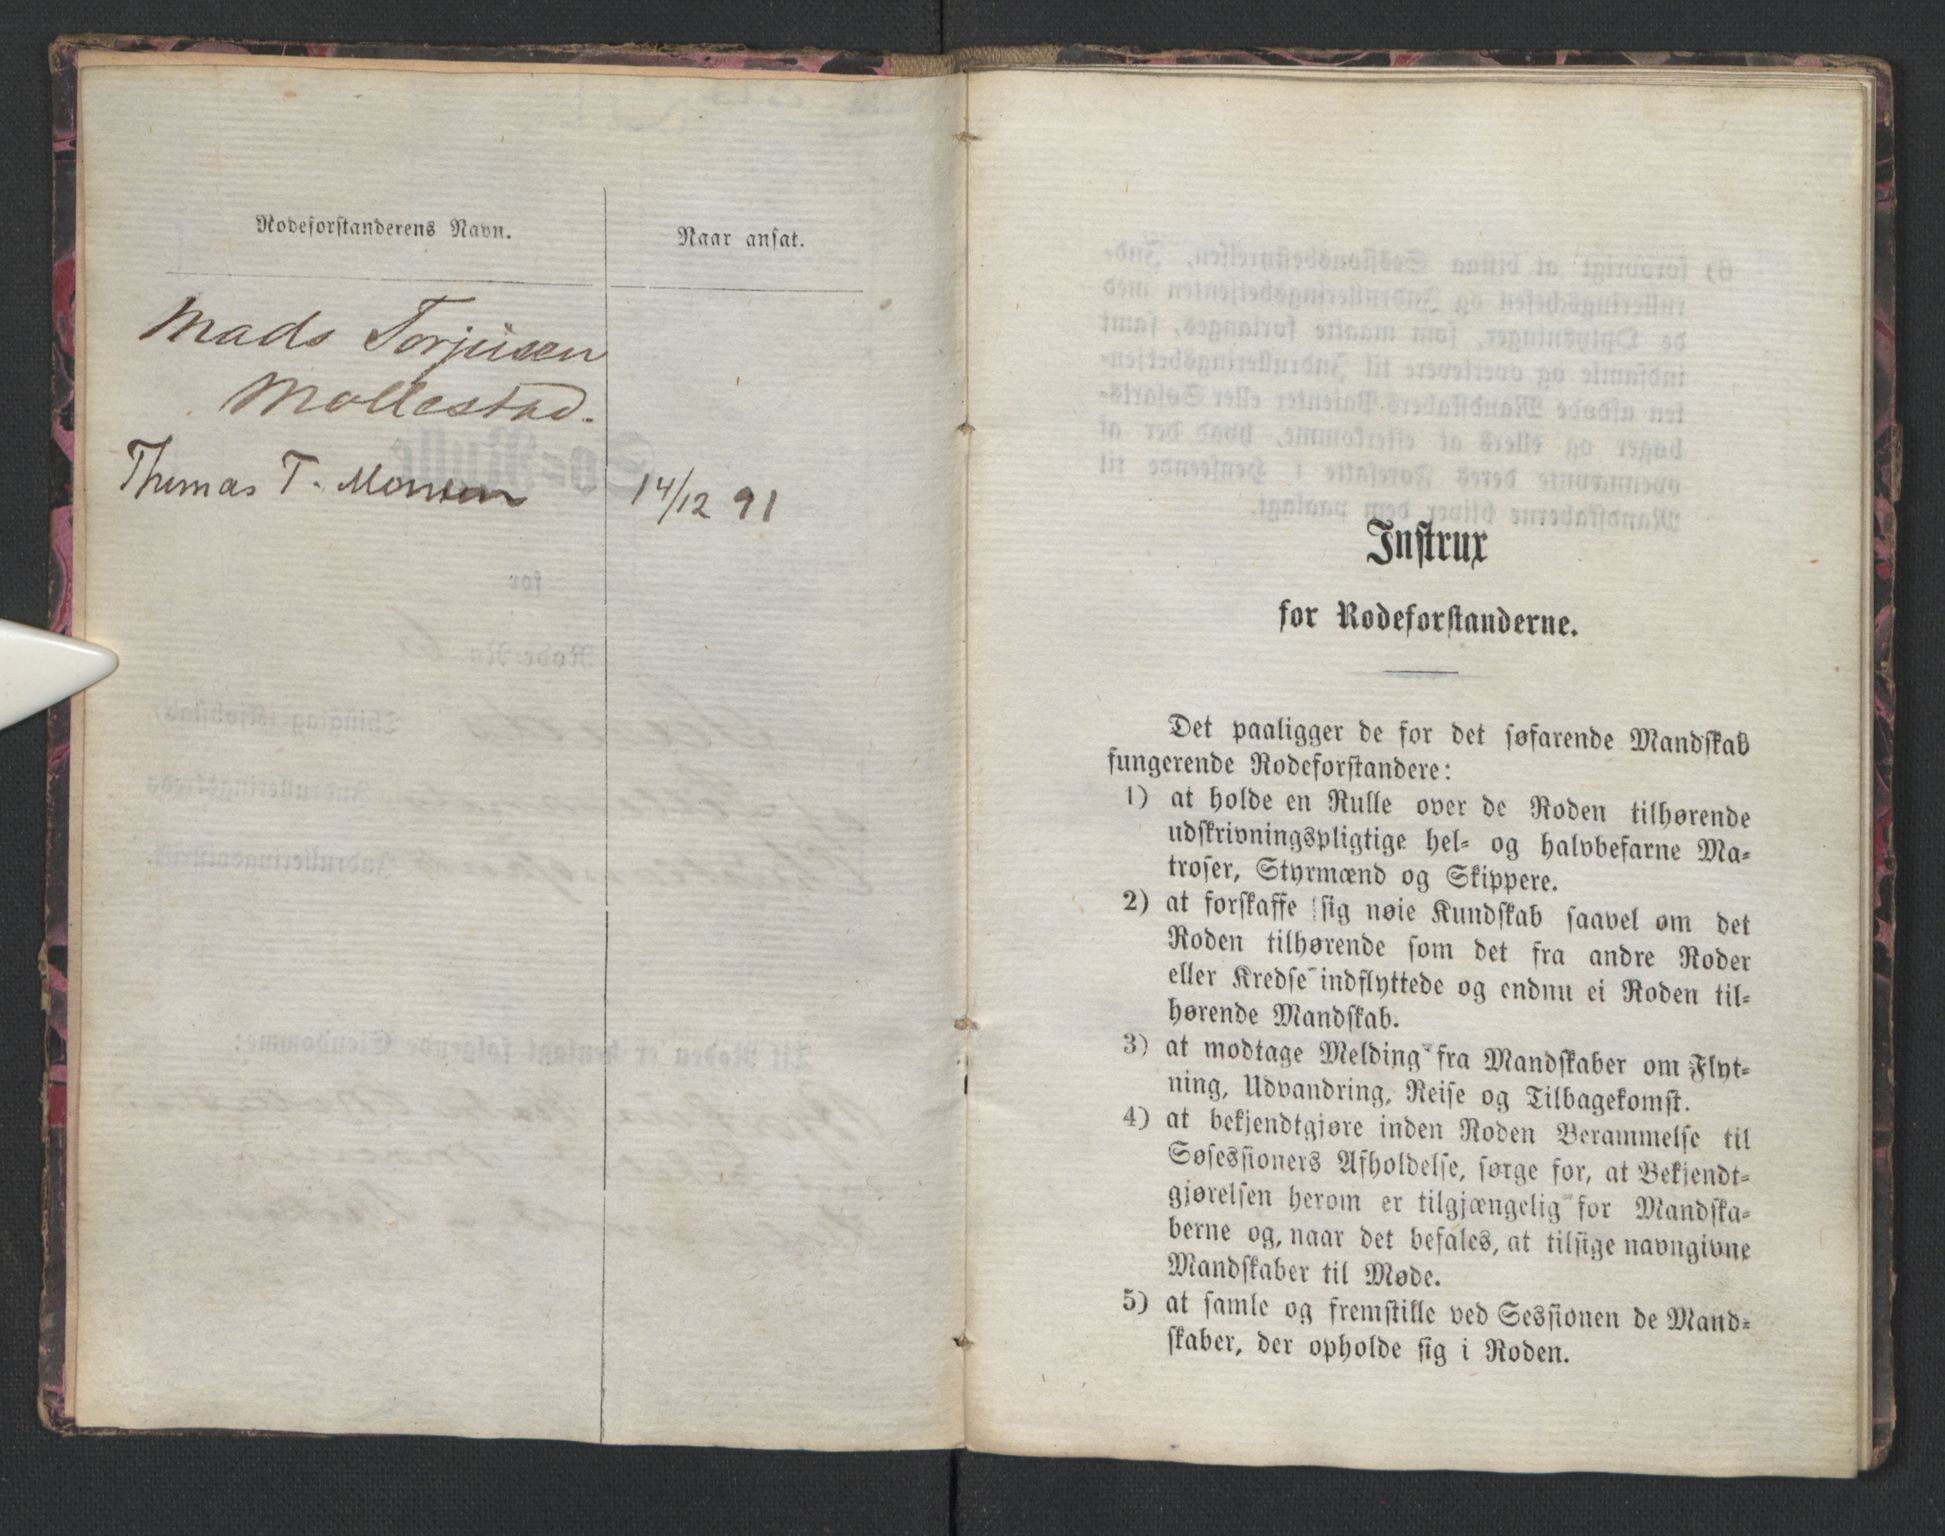 Rodeforstanderens Navn.
Naar ansat.
Mads Torjusen
Mollestad.
Thomas T. Monsen 14/12 91
Instrux
for Rodeforstanderne.
Det paaligger de for det søfarende Mandskab
fungerende Rodeforstandere:
1) at holde en Rulle over de Roden tilhørende
udskrivningspligtige hel- og halvbefarne Ma-
troser, Styrmænd og Skippere.
2) at forskaffe sig nøie Kundskab saavel om det
Roden tilhørende som det fra andre Roder
eller Kredse indflyttede og endnu ei Roden til-
hørende Mandskab.
3) at modtage Melding fra Mandskaber om Flyt-
ning, Udvandring, Reise og Tilbagekomst.
4) at bekjendtgjøre inden Roden Berammelse til
Søsessioners Afholdelse, sørge for, at Bekjendt-
gjørelsen herom er tilgjængelig for Mandska-
berne og, naar det befales, at tilsige navngivne
Mandskaber til Møde.
5) at samle og fremstille ved Sessionen de Mand-
skaber, der opholde sig i Roden.